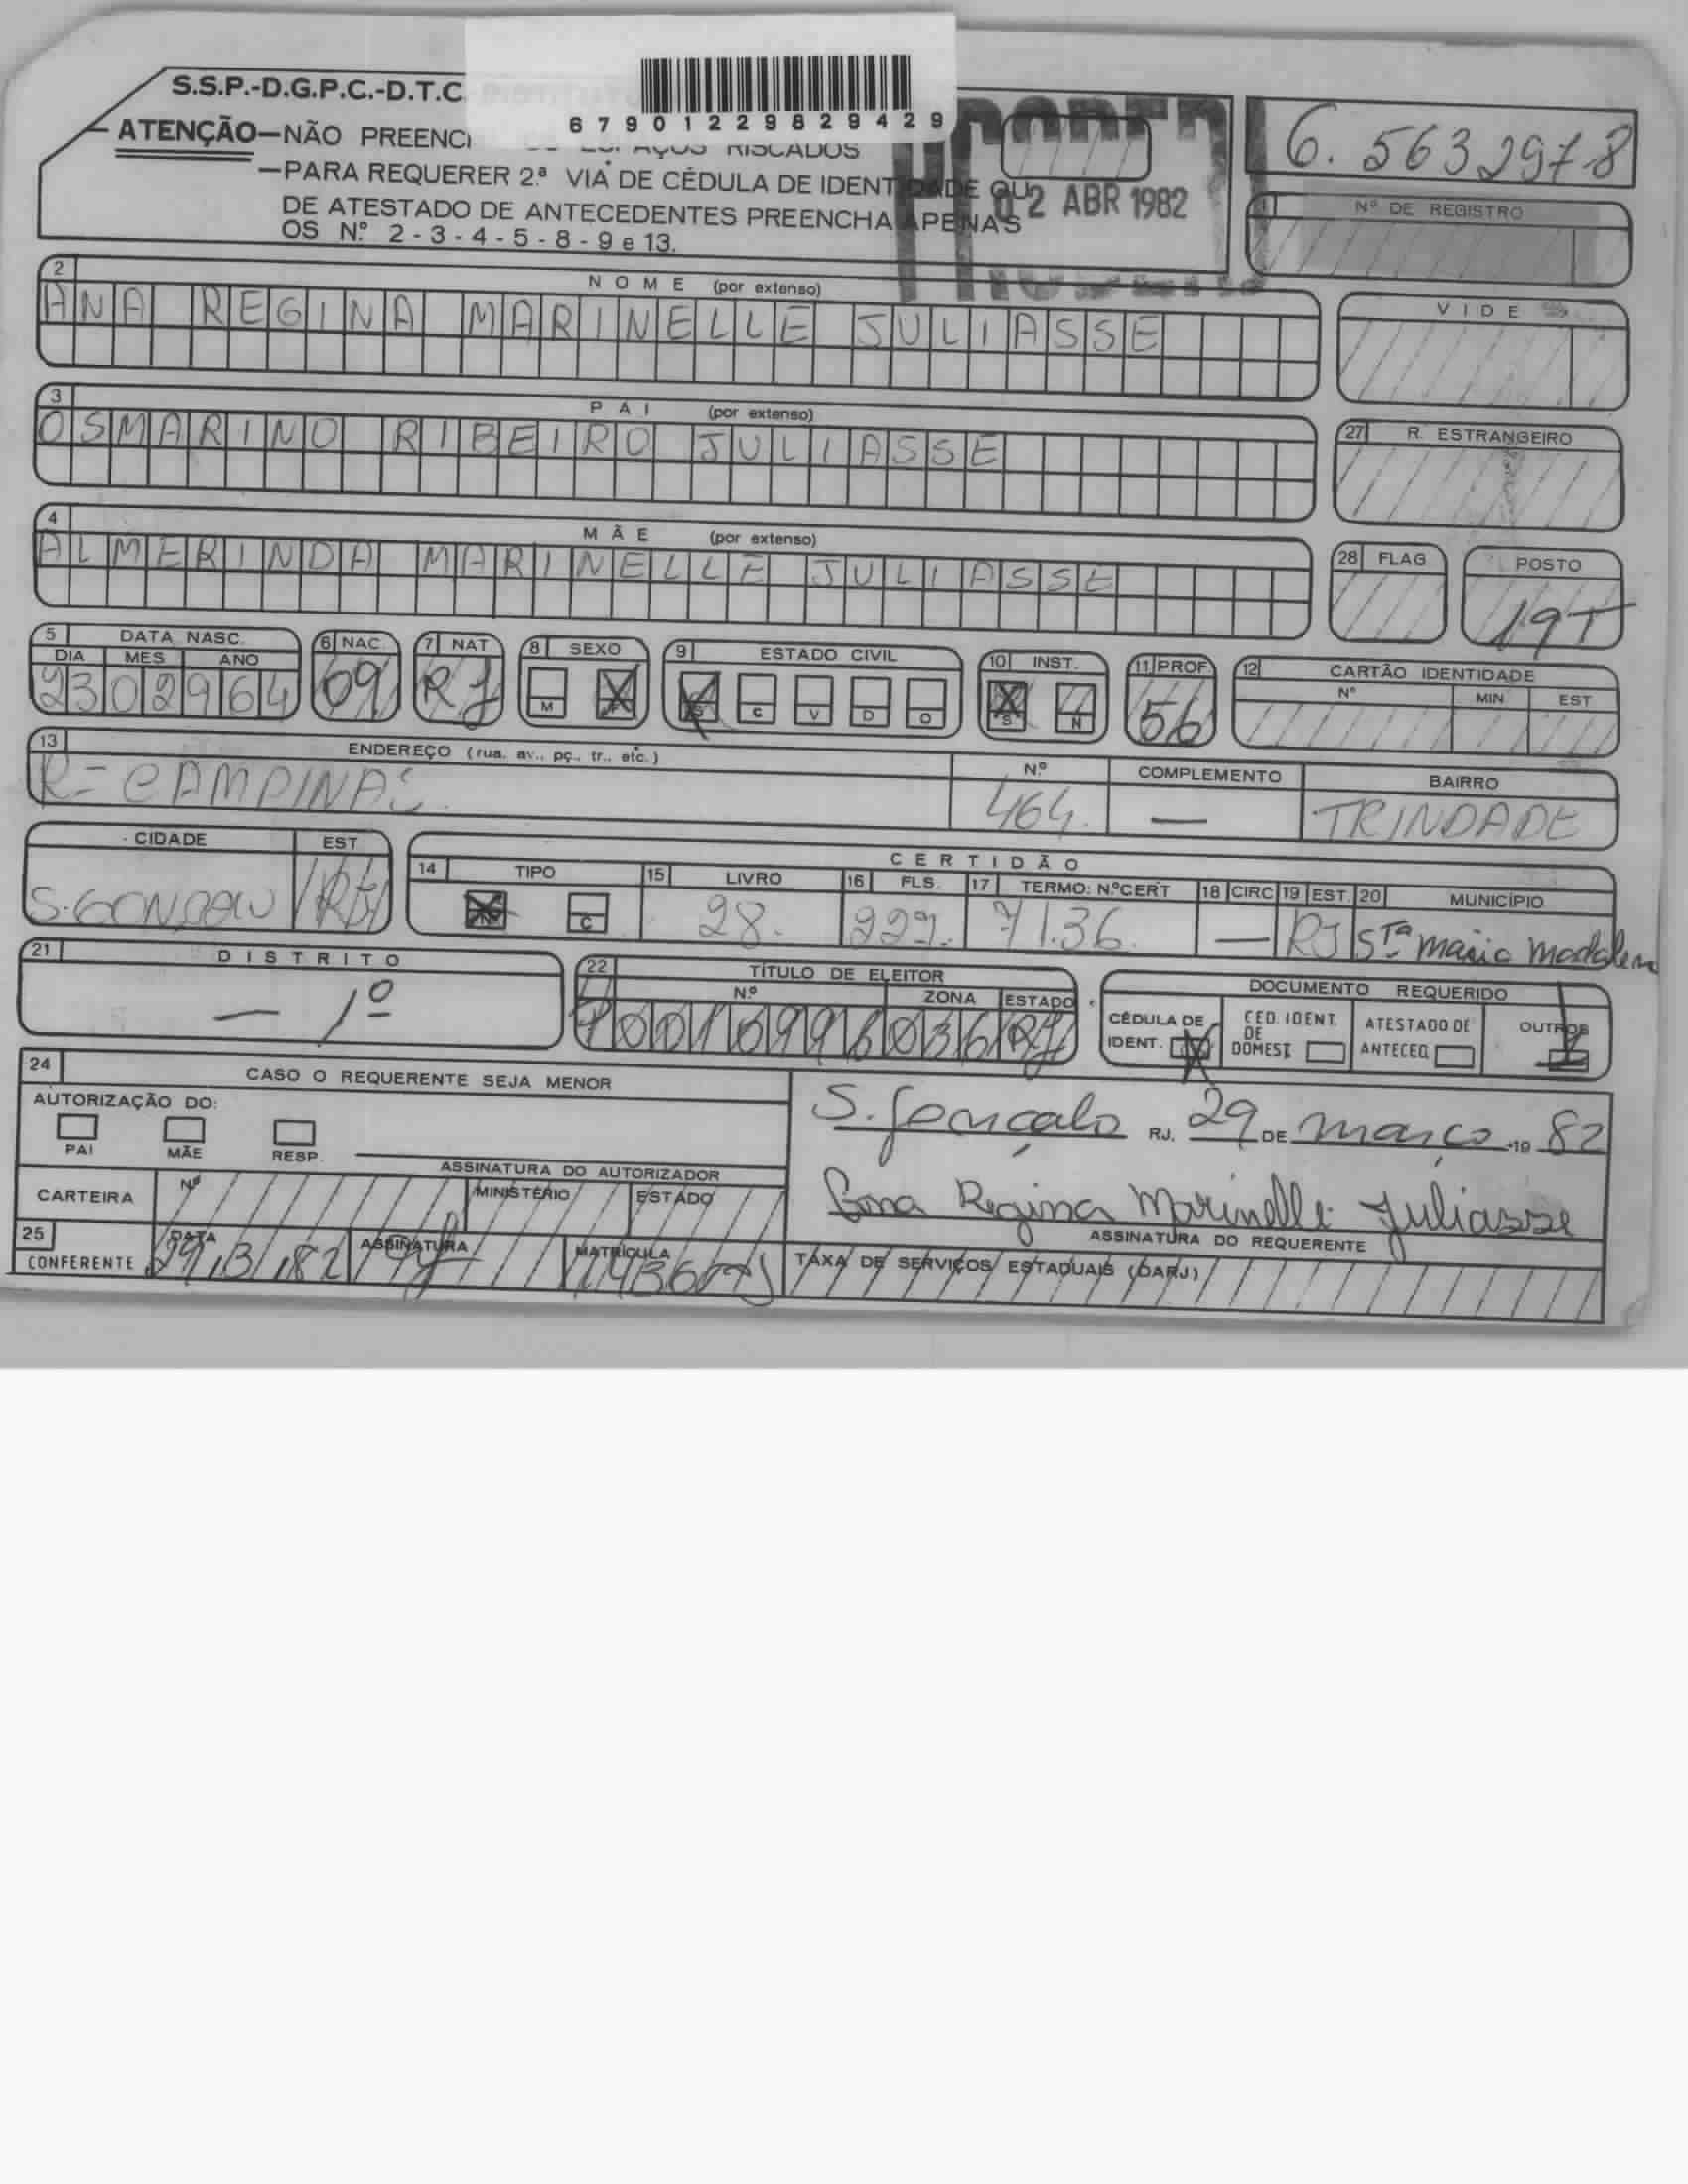 S.S.P.-D.G.P.C.-D.T.C.
67901229829429
ATENÇÃO—NÃO PREENC ESPAÇOS RISCADOS
—PARA REQUERER 2.ª VIA DE CÉDULA DE IDENTIDADE OU
DE ATESTADO DE ANTECEDENTES PREENCHA APENAS
OS N.º 2 - 3 - 4 - 5 - 8 - 9 e 13.
02 ABR 1982
6.563297-8
1 Nº DE REGISTRO
2 NOME (por extenso)
ANA REGINA MARINELLE JULIASSE
VIDE
3 PAI (por extenso)
OSMARINO RIBEIRO JULIASSE
27 R. ESTRANGEIRO
4 MÃE (por extenso)
ALMERINDA MARINELLE JULIASSE
28 FLAG
POSTO
19T
5 DATA NASC. 6 NAC. 7 NAT 8 SEXO 9 ESTADO CIVIL 10 INST. 11 PROF. 12 CARTÃO IDENTIDADE
DIA MES ANO Nº MIN. EST
23 02 964 09 RJ M F S C V D O S N 56
13 ENDEREÇO (rua, av., pç., tr., etc.) N.º COMPLEMENTO BAIRRO
R= CAMPINAS 464. — TRINDADE
CIDADE EST
S.GONÇALO RJ
CERTIDÃO
14 TIPO 15 LIVRO 16 FLS. 17 TERMO: N.ºCERT 18 CIRC 19 EST. 20 MUNICÍPIO
N C 28. 229. 7136. — RJ STª Maria Madalena
21 DISTRITO
— 1º
22 TÍTULO DE ELEITOR
N.º ZONA ESTADO
036 RJ
DOCUMENTO REQUERIDO
CÉDULA DE IDENT. CED. IDENT. DE DOMEST. ATESTADO DE ANTECED. OUTROS
24 CASO O REQUERENTE SEJA MENOR
AUTORIZAÇÃO DO:
PAI MÃE RESP.
ASSINATURA DO AUTORIZADOR
S. Gonçalo RJ. 29 DE março 19 82
CARTEIRA Nº MINISTÉRIO ESTADO
Ana Regina Marinelle Juliasse
ASSINATURA DO REQUERENTE
25 CONFERENTE DATA ASSINATURA MATRÍCULA
29,3,82
TAXA DE SERVIÇOS ESTADUAIS (DARJ)